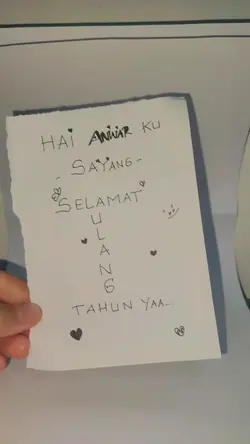 HAI ANWAR KU
- SAYANG -
SELAMAT
U
L
A
N
G
TAHUN YAA...